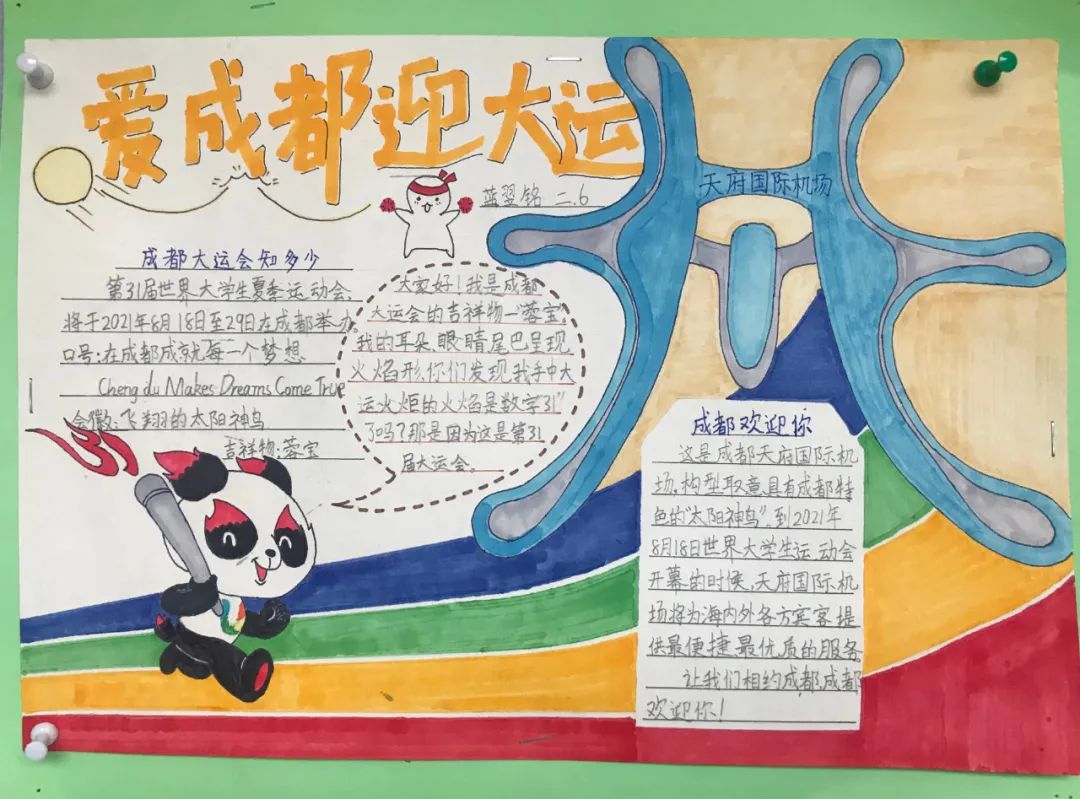 爱成都迎大运
蓝翌铭 二.6
天府国际机场
成都大运会知多少
第31届世界大学生夏季运动会,
将于2021年8月18日至29日在成都举办。
口号:在成都成就每一个梦想
Chengdu Makes Dreams Come True
会徽:飞翔的太阳神鸟
吉祥物:蓉宝
大家好!我是成都
大运会的吉祥物—“蓉宝”。
我的耳朵、眼睛尾巴呈现
火焰形,你们发现我手中大
运火炬的火焰是数字“31”
了吗?那是因为这是第31
届大运会。
成都欢迎你
这是成都天府国际机
场,构型取意具有成都特
色的“太阳神鸟”。到2021年
8月18日世界大学生运动会
开幕的时候,天府国际机
场将为海内外各方宾客提
供最便捷最优质的服务。
让我们相约成都,成都
欢迎你!